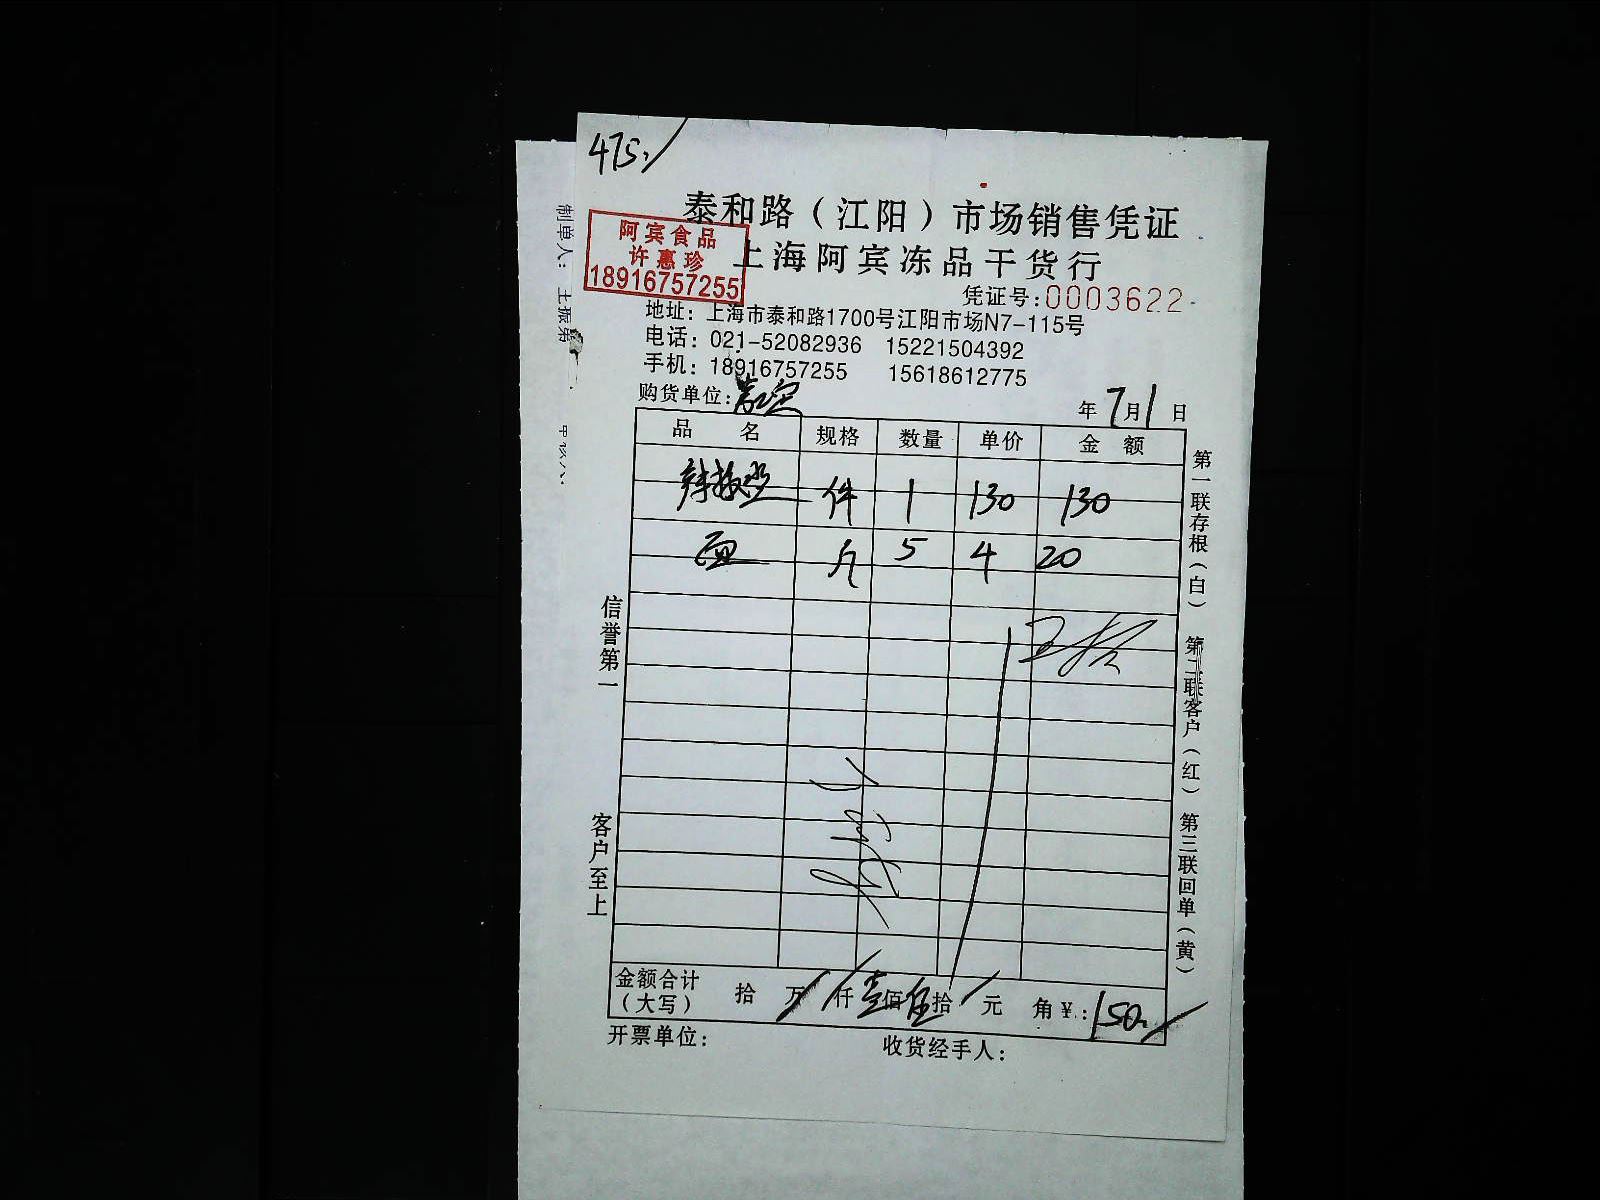 475.
泰和路（江阳）市场销售凭证
阿宾食品
许惠珍
18916757255
上海阿宾冻品干货行
凭证号:0003622
地址：上海市泰和路1700号江阳市场N7-115号
电话：021-52082936 15221504392
手机：18916757255 15618612775
购货单位： 年7月1日
品 名 规格 数量 单价 金 额
件 1 130 130
斤 5 4 20
金额合计（大写） 拾 万 仟壹佰伍拾 元 角￥.：150.
开票单位： 收货经手人：
信誉第一
客户至上
第一联存根（白） 第二联客户（红） 第三联回单（黄）
制单人：